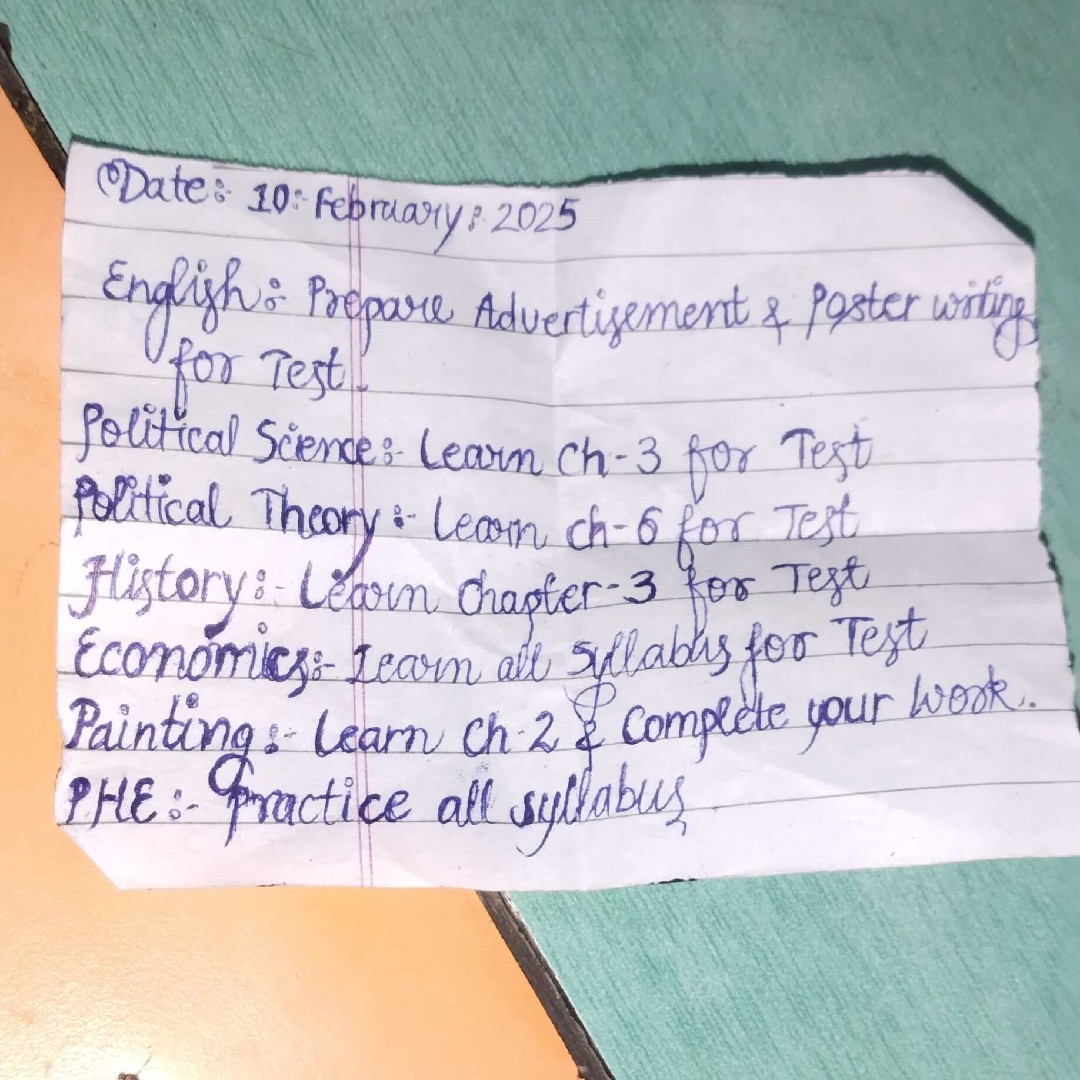 Date:- 10:- February:- 2025
English:- Prepare Advertisement & Poster writing
for Test.
Political Science:- Learn Ch-3 for Test
Political Theory:- Learn ch-6 for Test
History:- Learn Chapter-3 for Test
Economics:- Learn all Syllabus for Test
Painting:- Learn Ch-2 & Complete your Work.
PHE:- Practice all syllabus